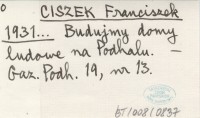 o
CISZEK Franciszek
1931... Budujmy domy
ludowe na Podhalu. –
Gaz. Podh. 19, nr 13.
6T/008/0837